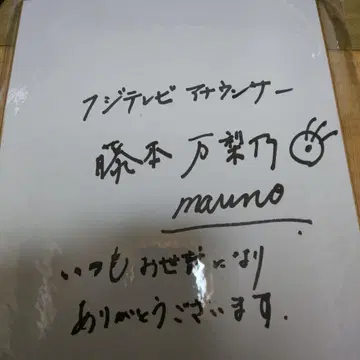 フジテレビ アナウンサー
藤本 万梨乃
mauno
いつもお世話になり
ありがとうございます.